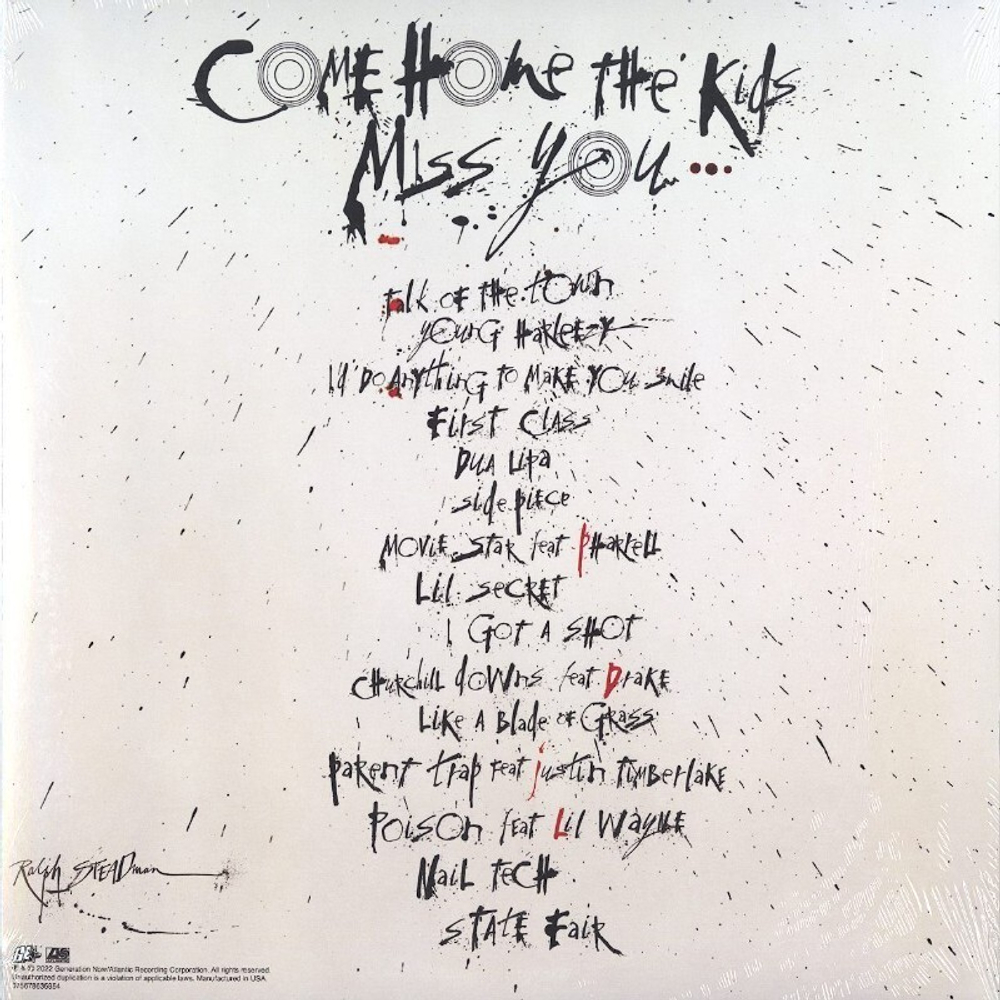 COME HOME THE KIDS
MISS YOU...
talk of the town
YOUNG HARLEEZY
I'd DO ANYthING TO MAKE YOU Smile
First CLASS
DUA LIPA
side piece
MOVIE STAR feat PHARRELL
Lil SECRET
I GOT A SHOT
CHURCHILL dOWNS feat DRAKE
LIKE A Blade OF GRASS
PARENT trap feat justin TIMBERLAKE
POISON feat Lil WAYNE
NAIL TECH
STATE FAIR
Ralph STEADman
℗ & © 2022 Generation Now/Atlantic Recording Corporation. All rights reserved.
Unauthorized duplication is a violation of applicable laws. Manufactured in USA.